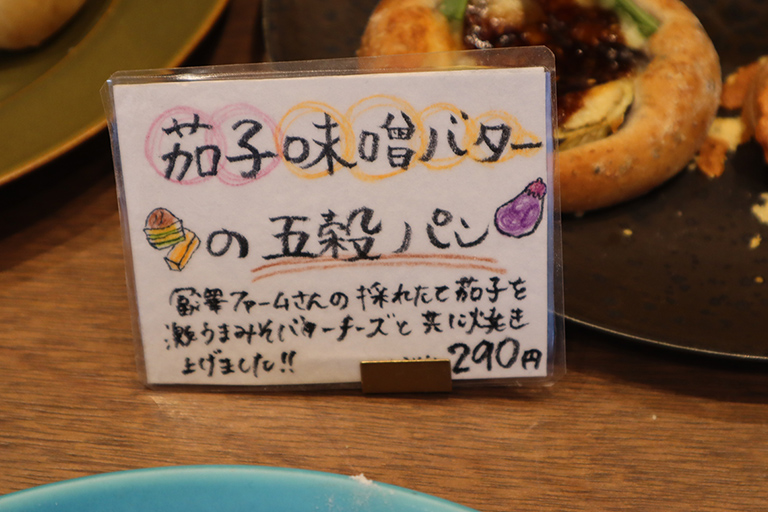 茄子味噌バター
の五穀パン
富澤ファームさんの採れたて茄子を
激うまみそバターチーズと共に焼き
上げました!!
290円